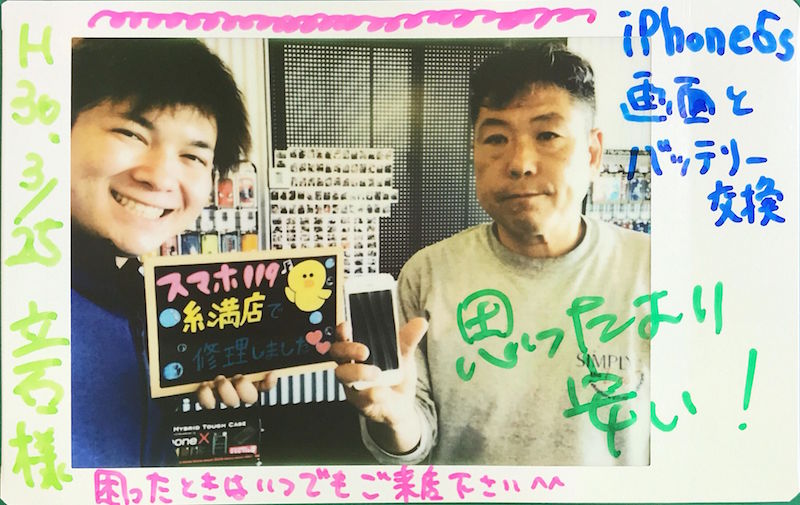 H30.3/25 立石様
iPhone6s
画面と
バッテリー
交換
スマホ119
糸満店で
修理しました
思ったより
安い!
SIMPLY
HYBRID TOUGH CASE
one X
困ったときはいつでもご来店下さい^^